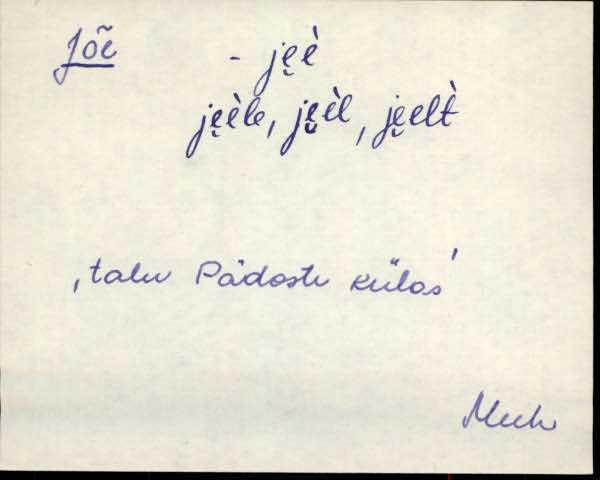 Jõe - je̮è
je̮èle, je̮èl, je̮elt̀
‚talu Pädaste külas’
Muh